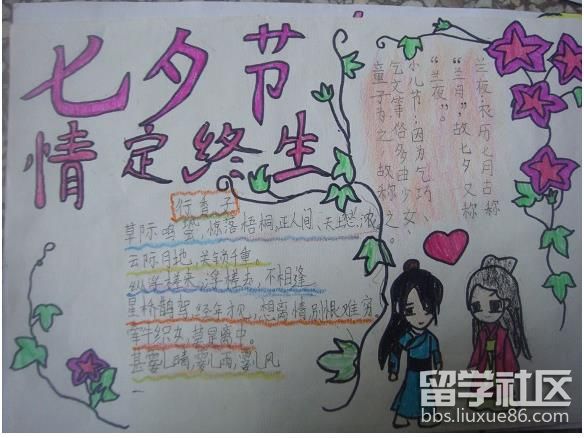 七夕节
情定终生
行香子
草际鸣蛩,惊落梧桐,正人间、天上愁浓
云阶月地,关锁千重。
纵浮槎来,浮槎去,不相逢
星桥鹊驾,经年才见,想离情、别恨难穷
牵牛织女,莫是离中。
甚霎儿晴,霎儿雨,霎儿风
兰夜:农历七月古称
“兰月”,故七夕又称
“兰夜”。
小儿节:因为乞巧、
乞文等俗多由少女、
童子为之,故称之。
留学社区
bbs.liuxue86.com